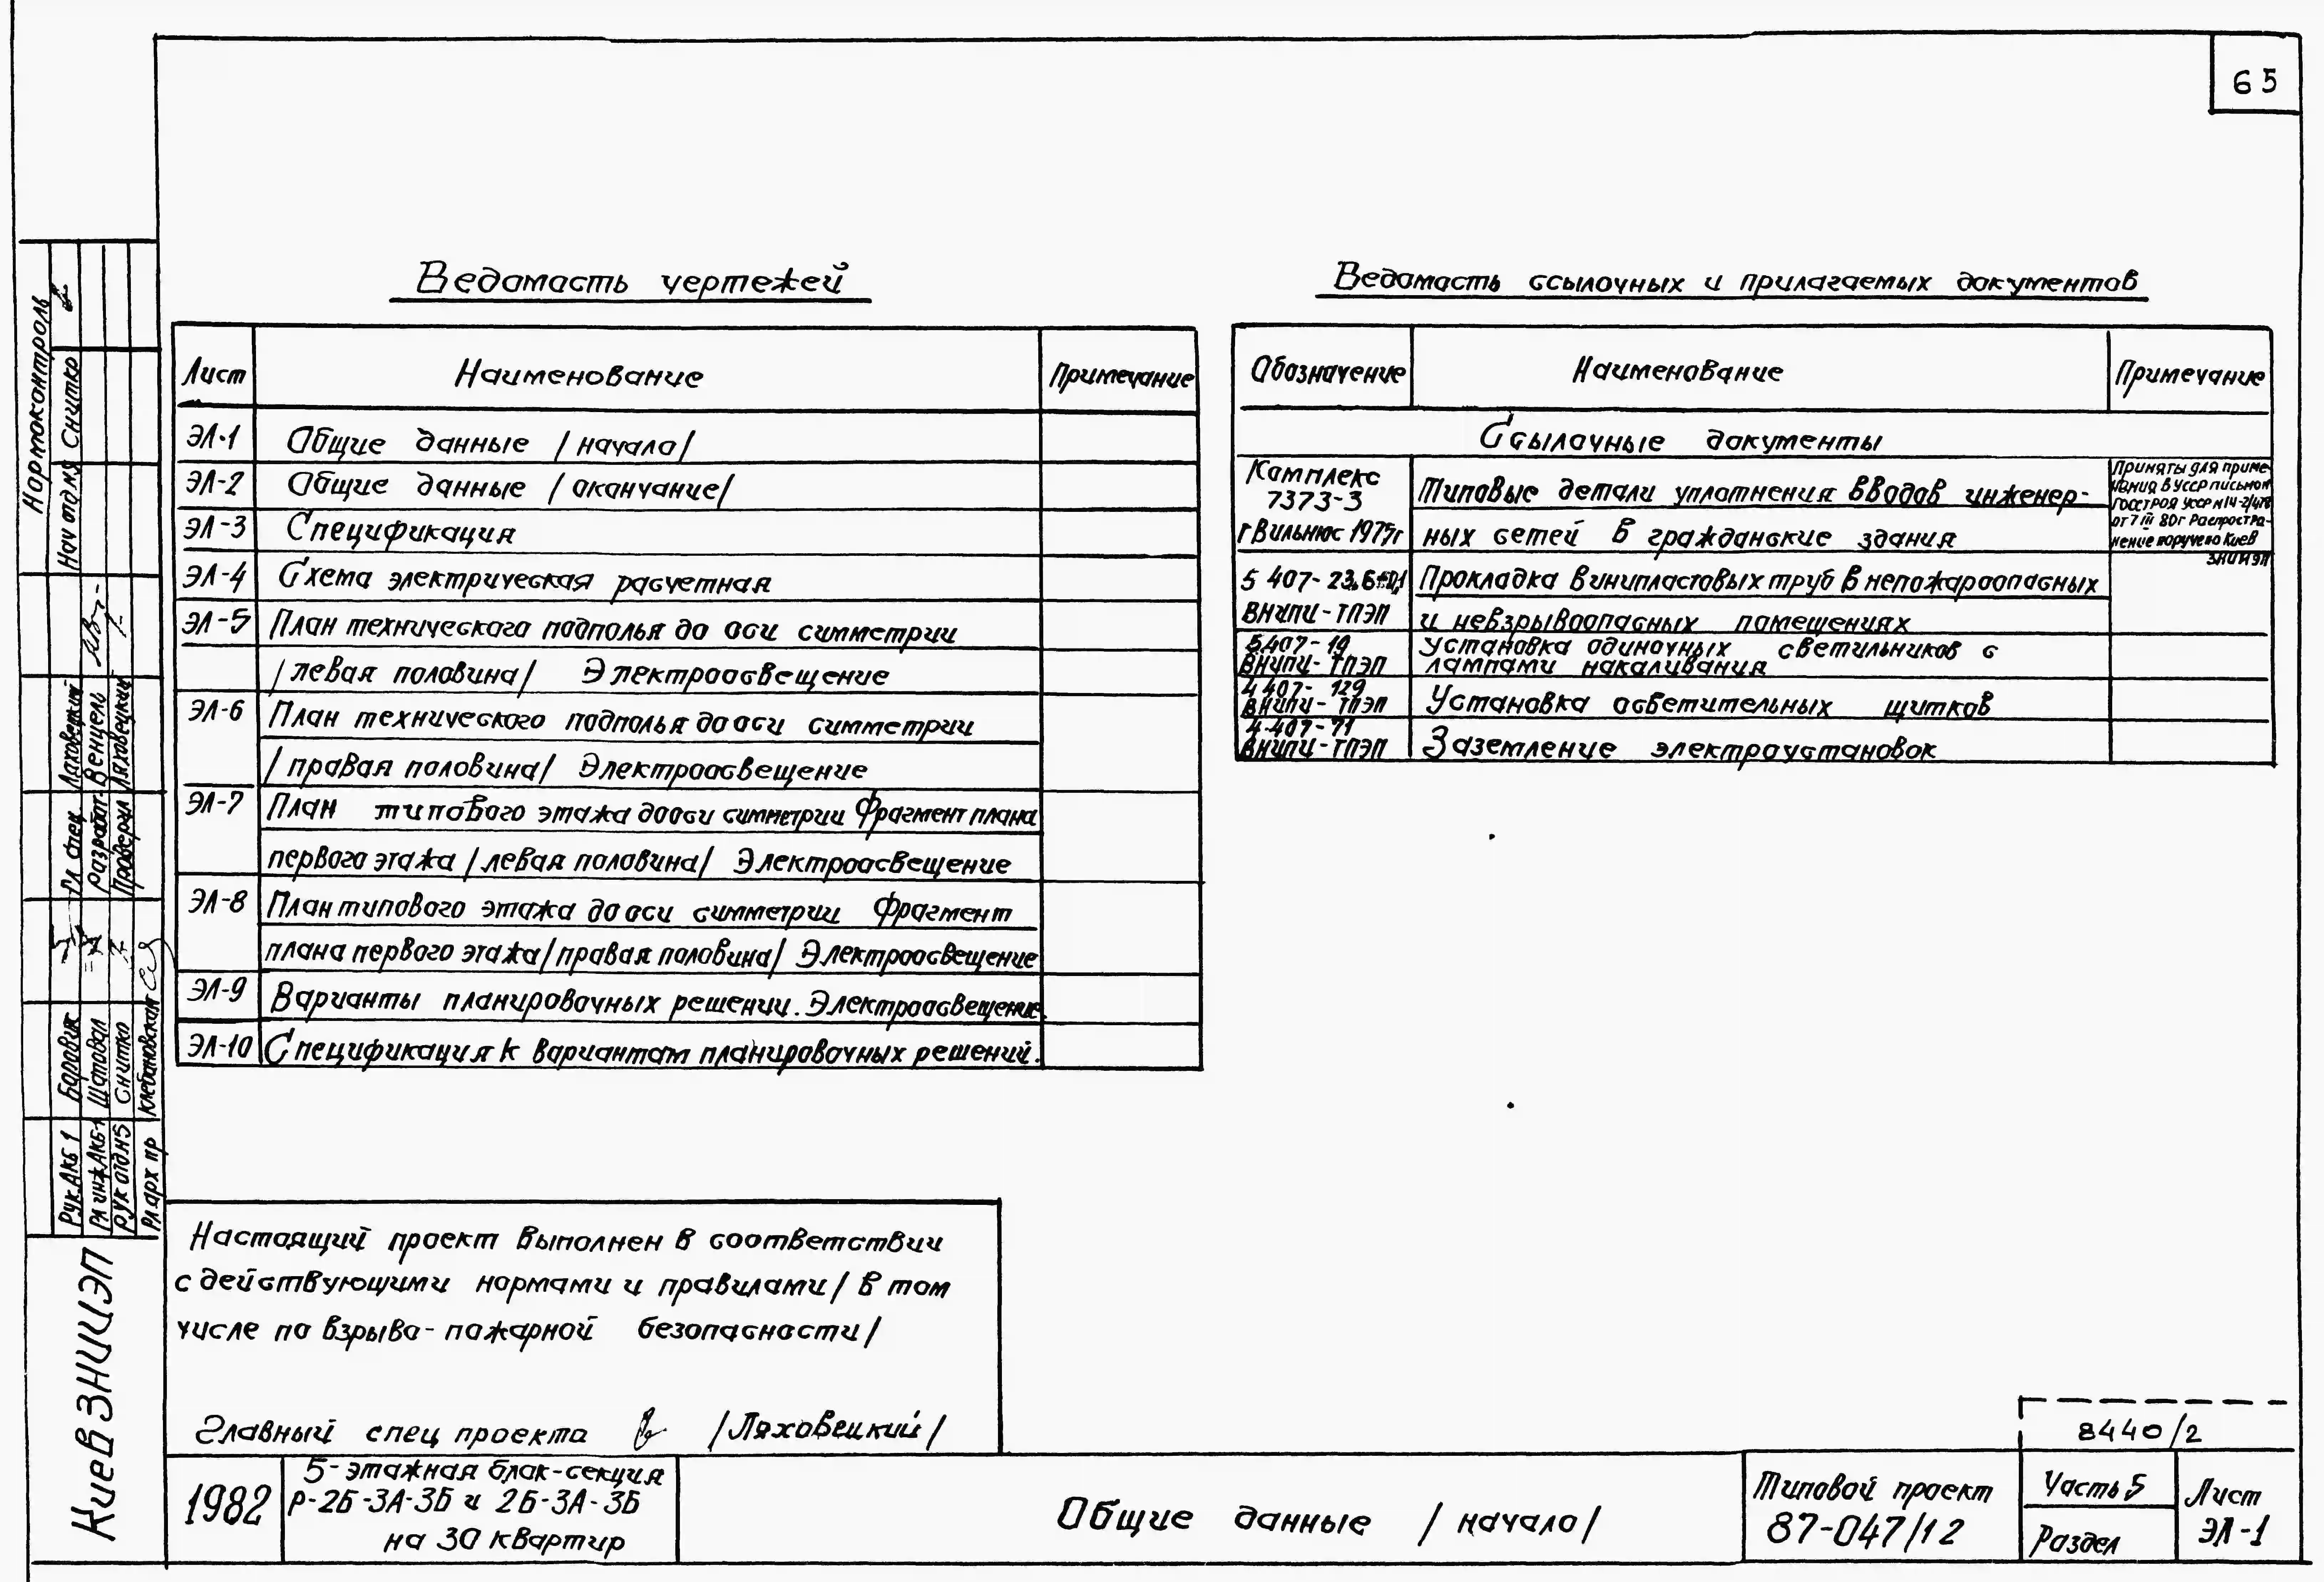 65
Ведомость чертежей
Лист Наименование Примечание
ЭЛ-1 Общие данные /начало/
ЭЛ-2 Общие данные /окончание/
ЭЛ-3 Спецификация
ЭЛ-4 Схема электрическая расчетная
ЭЛ-5 План технического подполья до оси симметрии
/левая половина/ Электроосвещение
ЭЛ-6 План технического подполья до оси симметрии
/правая половина/ Электроосвещение
ЭЛ-7 План типового этажа до оси симметрии Фрагмент плана
первого этажа /левая половина/ Электроосвещение
ЭЛ-8 План типового этажа до оси симметрии Фрагмент
плана первого этажа /правая половина/ Электроосвещение
ЭЛ-9 Варианты планировочных решении. Электроосвещение.
ЭЛ-10 Спецификация к вариантам планировочных решений.
Ведомость ссылочных и прилагаемых документов
Обозначение Наименование Примечание
Ссылочные документы
Комплекс
7373-3
г Вильнюс 1975г
Типовые детали уплотнения вводов инженер-
ных сетей в гражданские здания
Приняты для приме-
нения в УССР письмом
Госстроя УССР
от 7 III 80г Распростра-
нение поручено Киев
ЗНИИЭП
5 407-23
ВНИПИ-ТПЭП
Прокладка винипластовых труб в непожароопасных
и невзрывоопасных помещениях
5.407-19
ВНИПИ-ТПЭП
Установка одиночных светильников с
лампами накаливания
4 407-129
ВНИПИ-ТПЭП
Установка осветительных щитков
4.407-71
ВНИПИ-ТПЭП
Заземление электроустановок
Нормоконтроль
Нач отд №9 Снитко
Гл спец Ляховецкий
Разработ. Венцель
Проверил Ляховецкий
Рук.АКБ 1
Гл инж АКБ-1 Шаповал
Рук отд №5 Снитко
Гл арх пр Клебановская
КиевЗНИИЭП
Настоящий проект выполнен в соответствии
с действующими нормами и правилами /в том
числе по взрыво-пожарной безопасности/
Главный спец проекта /Ляховецкий/
1982
5-этажная блок-секция
Р-2Б-3А-3Б и 2Б-3А-3Б
на 30 квартир
Общие данные /начало/
Типовой проект
87-047/12
8440/2
Часть 5
Раздел
Лист
ЭЛ-1